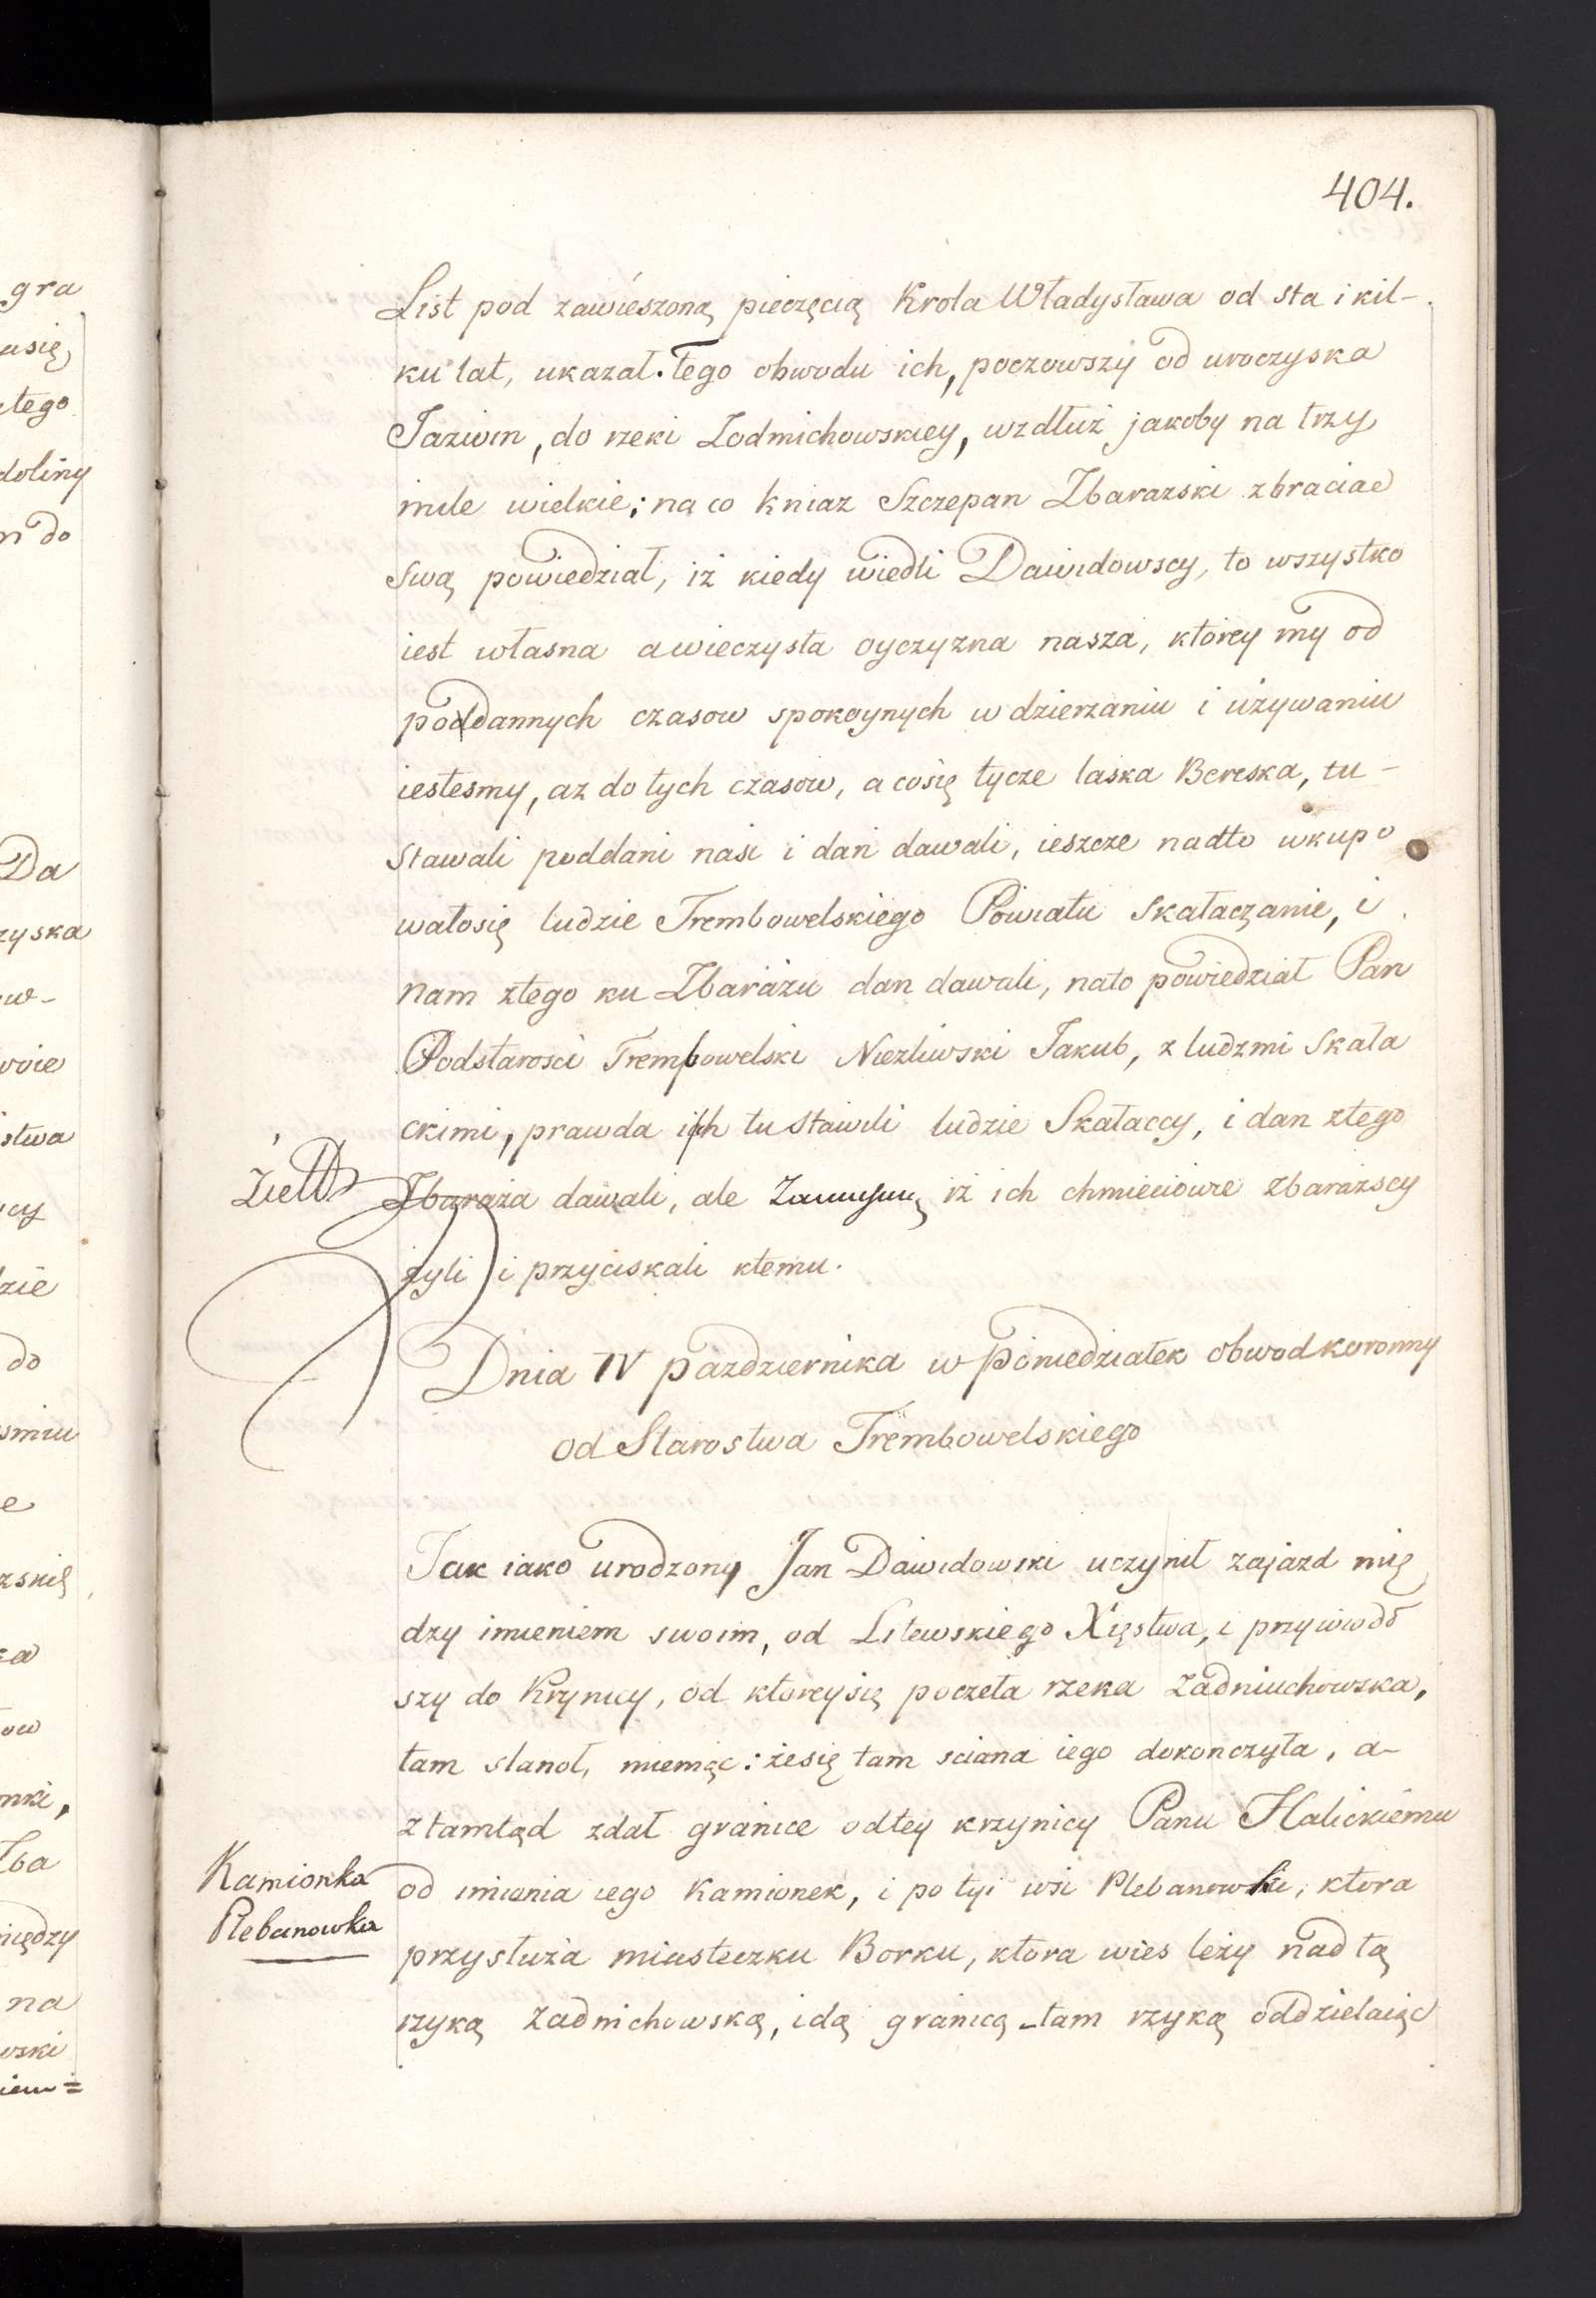 404.
List pod zawieszoną pieczęcią Krola Władysława od sta i kil-
ku lat, ukazał. tego obwodu ich, poczowszy od uroczyska
Jaziwin, do rzeki Zodmichowskiey, wzdłuż jakoby na trzy
mile wielkie; na co kniaz Szczepan Zbarazski zbraciae
swą powiedział, iż kiedy wiedli Dawidowscy, to wszystko
iest własna awieczysta oyczyzna nasza, ktorey my od
poddannych czasow spokoynych w dzierzaniu i używaniu
iestesmy, az do tych czasow, a cosię tycze laska Bereska, tu-
stawali poddani nasi i dań dawali, ieszcze nadto wkupo
wałosię ludzie Trembowelskiego Powiatu Skałaczanie, i
nam ztego ku Zbarażu dan dawali, nato powiedział Pan
Podstarosci Trembowelski Niezliwski Jakub, z ludzmi Skała
ckimi, prawda ich tu stawili ludzie Skałaccy, i dan ztego
Zbaraża dawali, ale iż ich chmieciowie zbarażscy
żyli i przyciskali ktemu.
Dnia IV pazdziernika w poniedziałek obwod koronny
od Starostwa Trembowelskiego
Tak iako urodzony Jan Dawidowski uczynił zajazd mię
dzy imieniem swoim, od Litewskiego Xięstwa, i przywiodł
szy do Krynicy, od ktoreysię poczeła rzeka Zadniuchowska,
tam stanoł, mieniąc: żesię tam sciana iego dokonczyła, a-
ztamtąd zdał granice odtey krzynicy Panu Halickiemu
Kamionka
Plebanowka
od imienia iego Kamionek, i po tyi wsi Plebanowki, ktora
przysłuża miasteczku Borku, ktora wies leży nad tą
rzyką Zadnichowską, idą granicą tam rzyką oddzielaiąc